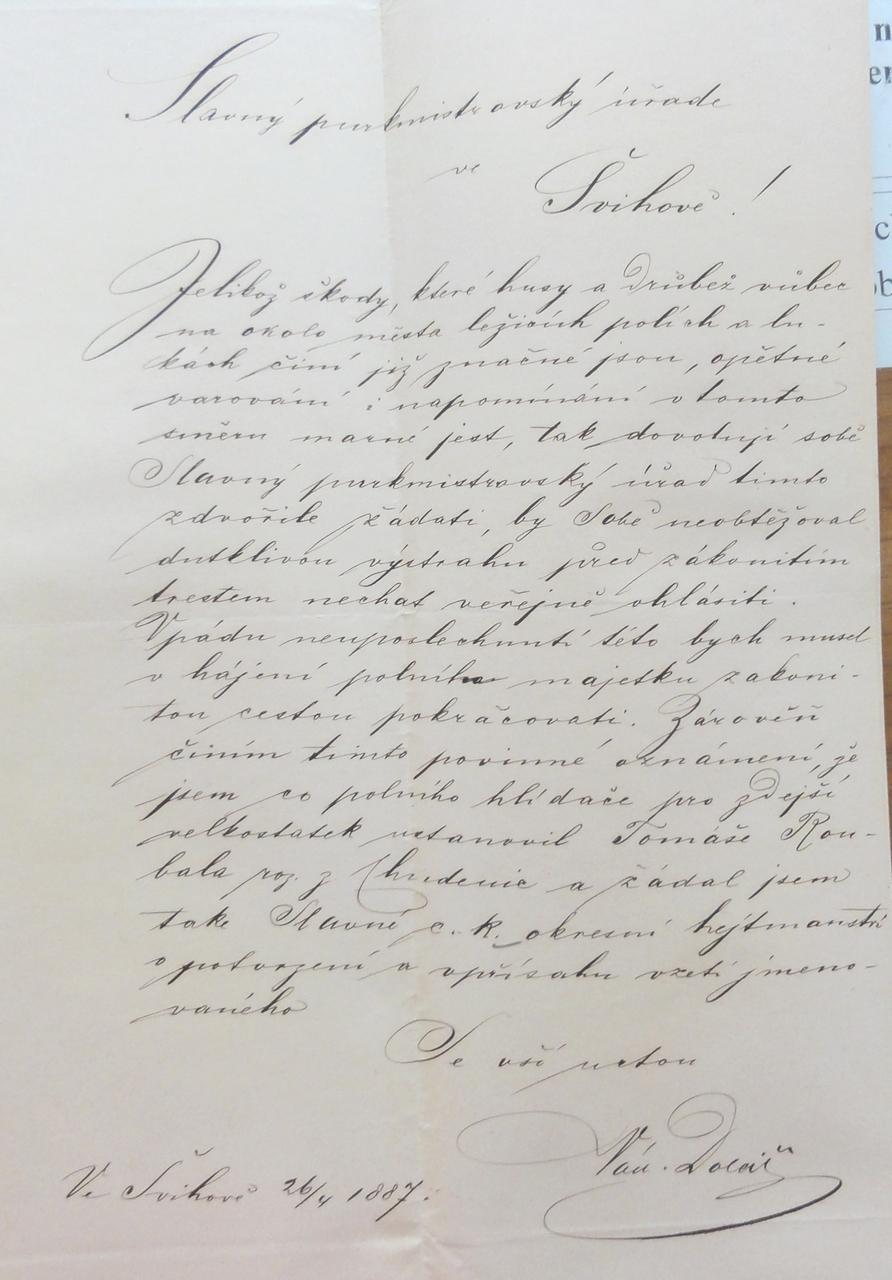 Slavný purkmistrovský úřade
ve
Švihově!
Jelikož škody, které husy a drůbež vůbec
na okolo města ležících polích a lu-
kách činí již značné jsou, opětné
varování i napomínání v tomto
směru marné jest, tak dovoluji sobě
Slavný purkmistrovský úřad timto
zdvořile žádati, by sobě neobtěžoval
dutklivou výstrahu před zákonitím
trestem nechat veřejně ohlásiti.
Vpádu neuposlechnutí této bych musel
v hájení polního majetku zakoni-
tou cestou pokračovati. Zárověň
činím timto povinné oznámení, že
jsem co polního hlídače pro zdejší
velkostatek ustanovil Tomáše Rou-
bala roz. z Chudenic a žádal jsem
take Slavné c. k. okresní hejtmanství
o potvrzení a vpřísahu vzetí jmeno-
vaného
Se vší uctou
Ve Švihově 26/4 1887.
Vác.